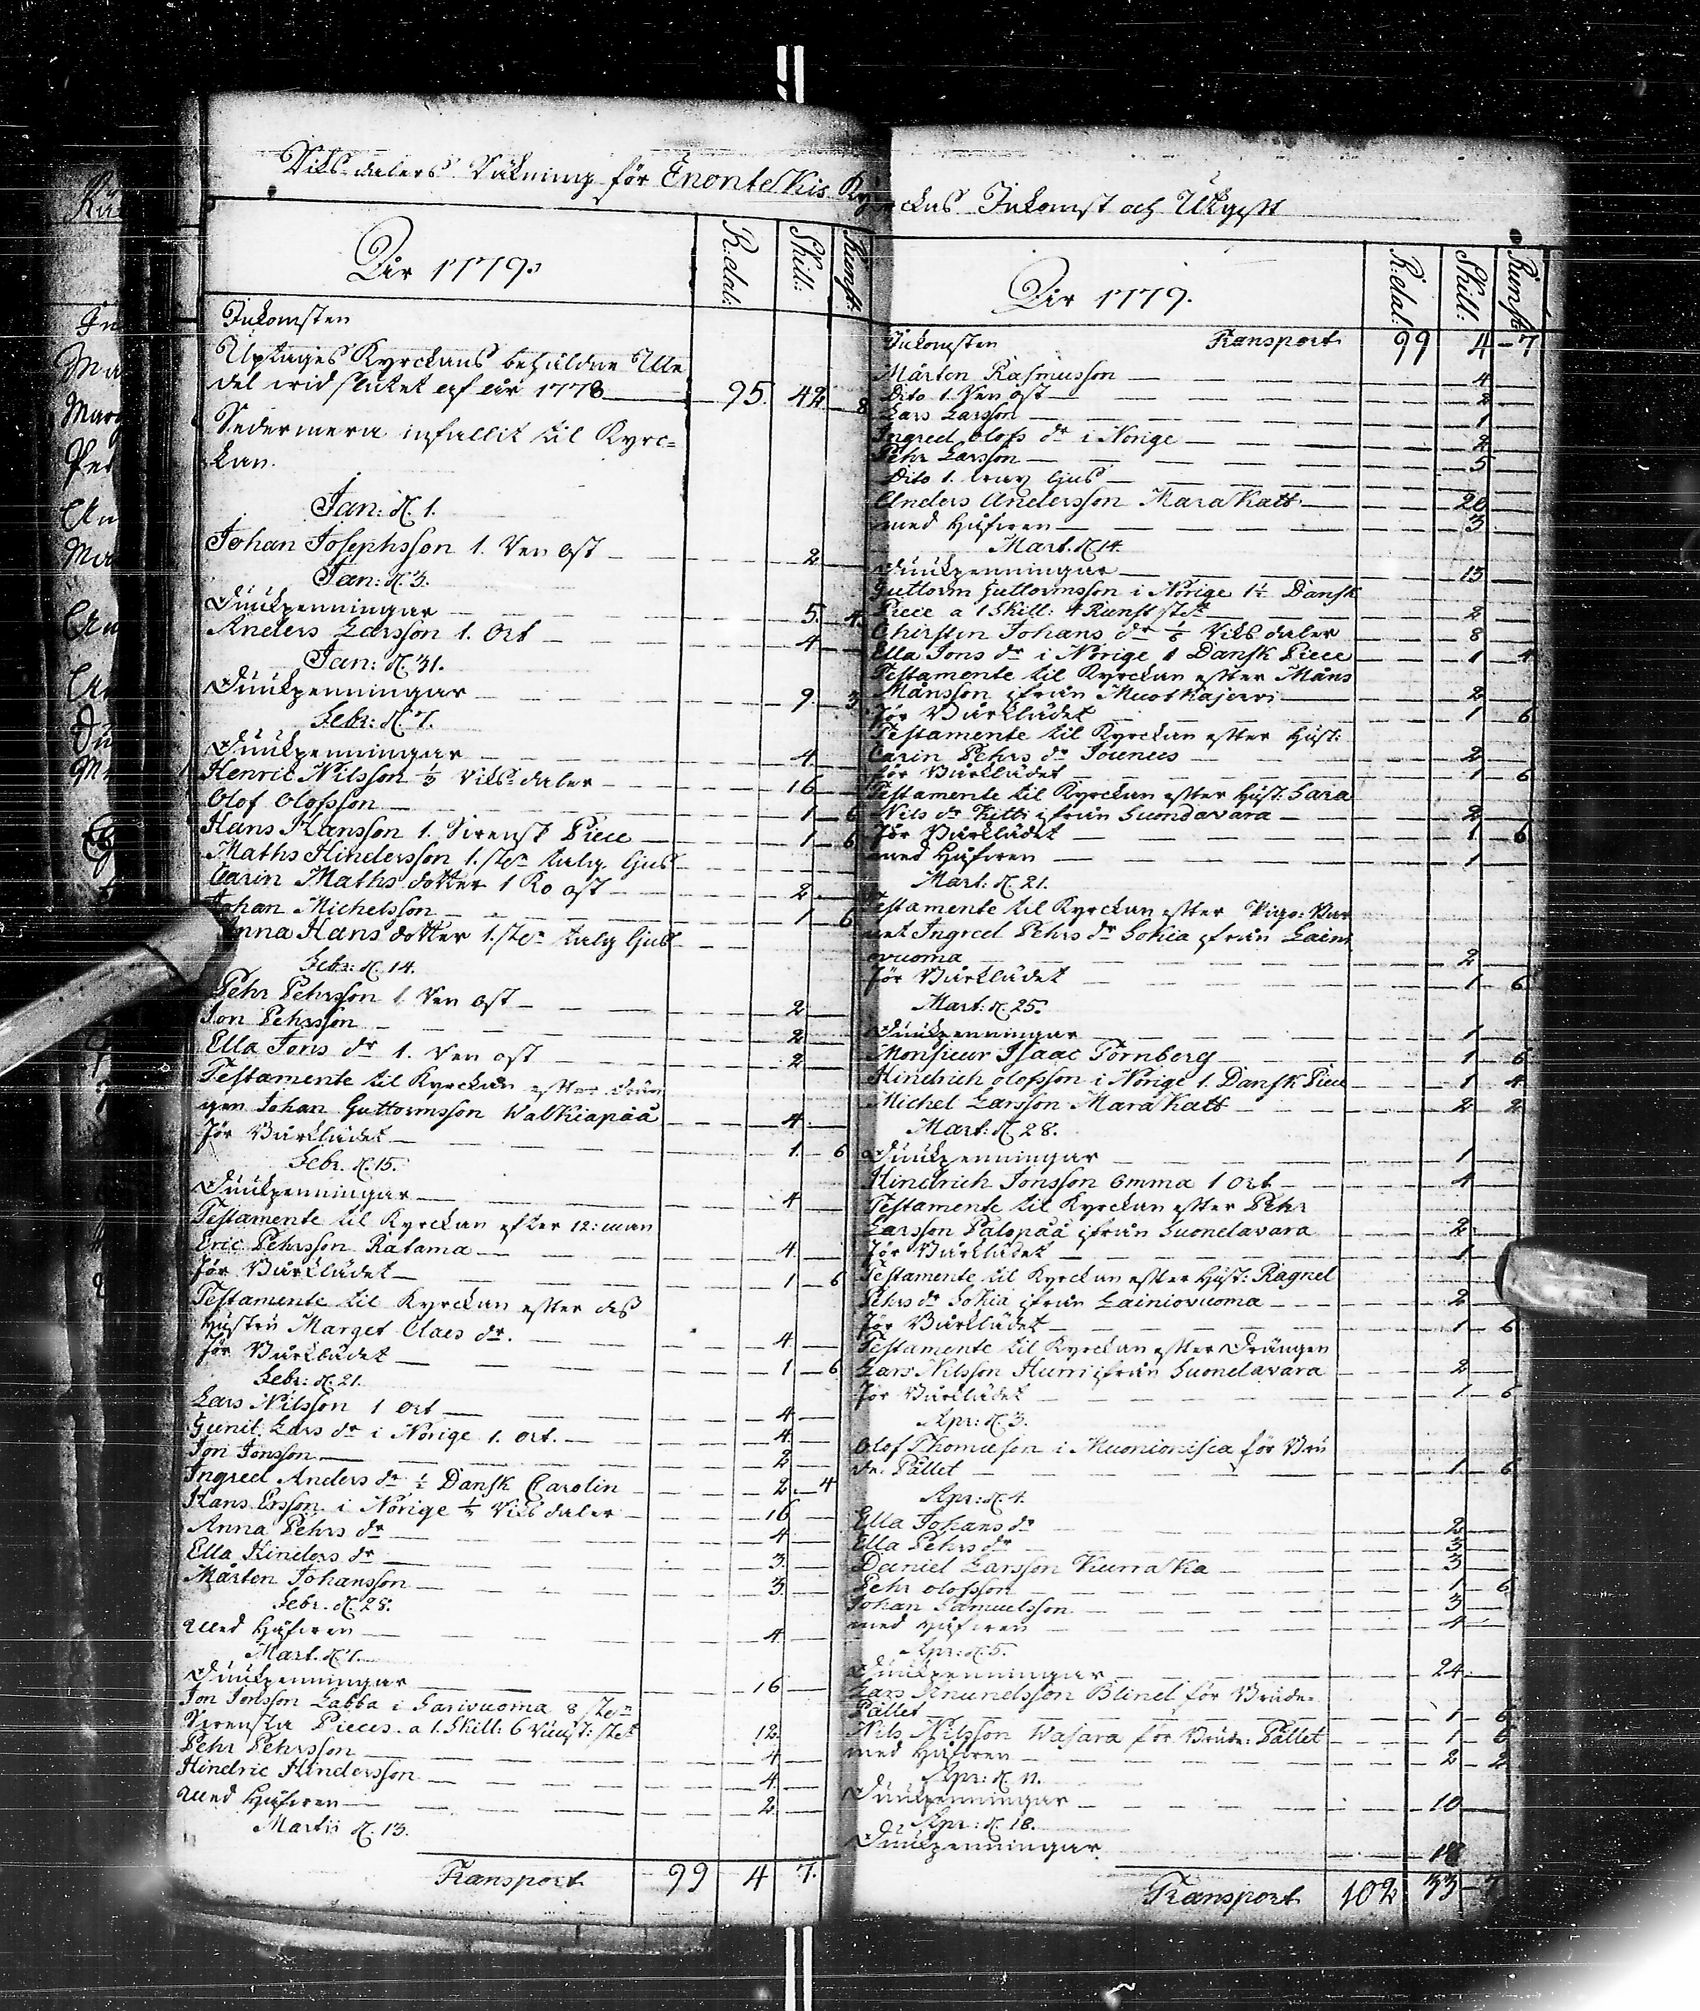 Riksdalers Räkning för Enontekis Kyrckas Inkomst och Utgift
Åir 1779.
R:dal: Skill: Runst:
Inkomsten
Uptages Kyrckans behåldne Me
del wid slutet af år 1778 95. 42 8
Sedermera infallit til Kyrc=
kan.
Jan: d. 1.
Johan Josephsson 1. Ren ost 2
Jan: d. 3.
Tiuckpenningar 5. 4.
Anders Larsson 1. Ort 4
Jan: d. 31.
Tiuckpenningar 9. 3
Febr: d. 7.
Tiuckpenningar 4.
Henric Nilsson 1/3 Riksdaler 16
Olof Olofsson 1 6
Hans Hansson 1. Svensk Piece 1 6
Maths Hindersson 1. st:n talg ljus
Carin Maths dotter 1 Ko ost 2
Johan Michelsson 1 6
Anna Hans dotter 1. st:n talg ljus
Febr: d. 14.
Pehr Pehrsson 1 Ren ost 2
Jon Pehrsson 2
Ella Jons dr 1. Ren ost 2
Testamente til Kyrckan efter Drän
gen Johan Guttormsson Walkiapää 4
för Bårklädet 1. 6
Febr. d. 15.
Tiuckpenningar 4
Testamente til Kyrckan efter 12: man
Eric Pehrsson Ratama 4.
för Bårklädet 1 6
Testamente til Kyrckan efter dess
Hustru Marget Claes dr. 4
för Bårklädet 1 6
Febr: d. 21.
Lars Nilsson 1 Ort 4
Gunil. Lars dr i Norige 1. Ort. 4.
Jon Jonsson 2
Ingred Anders dr 1/2 Dansk Carolin 2. 4
Hans Ersson i Norige 1/3 Riksdaler 16
Anna Pehrs dr 4
Ella Hinders dr 3.
Mårten Johansson 3.
Febr. d. 28.
Med Håfwen 4
Mart. d. 7.
Tiuckpenningar 16
Jon Jonsson Labba i Sarivuoma 8 st:n
Svenska Pieces a 1. Skill: 6 Runst: st:t 12.
Pehr Pehrsson 4
Hindric Hindersson 4.
Med Håfwen 2
Martii d. 13.
Transport 99 4 7.
Åir 1779.
R:dal: Skill: Runst
Inkomsten Transport 99 4 7
Mårten Rasmusson 4
Dito 1. Ren ost 2
Lars Larsson 1
Ingred Olofs dr i Norige 2
Pehr Larsson 5
Dito 1. ljus
Anders Andersson Marakatt 20
med Håfwen 3
Mart. d. 14.
Tiuckpenningar 15
Guttorm Guttormsson i Norige 1 1/2 Dansk
Piece a 1 Skill: 4 Runst st:t 2
Chirstin Johans dr 1/6 Riksdaler 8
Ella Jons dr i Norige 1 Dansk Piece 1 4
Testamente til Kyrckan efter Måns
Månsson ifrån Muotkajervi 2
för Bårklädet 1 6
Testamente til Kyrckan efter Hust:
Carin Pehrs dr Jounus 2
för Bårklädet 1 6
Testamente til Kyrckan efter Hust. Sara
Nils dr Kitti ifrån Suondavara 2
för Bårklädet 1 6
med Håfwen 1
Mart: d. 21.
Testamente til Kyrckan efter Pigo: Bar
net Ingred Pehrs dr Sokia ifrån Laini
ovuoma 2
för Bårklädet 1 6
Mart: d. 25.
Tiuckpenningar 1
Monsieur Isaac Törnberg 1 6
Hindrich Olofsson i Norige 1. Dansk Piece 1 4
Michel Larsson Marakatt 2 2
Mart: d. 28.
Tiuckpenningar 1
Hindrich Jonsson Omma 1 Ort 4
Testamente til Kyrckan efter Pehr
Larsson Palopää ifrån Suondavara 2
för Bårklädet 1
Testamente til Kyrckan efter Hust: Ragnel
Pehrs dr Sokia ifrån Lainiovuoma 2
för Bårklädet 1 6
Testamente til Kyrckan efter Drängen
Lars Nilsson Hurri ifrån Suondavara 2
för Bårklädet 1 6
Apr: d. 3.
Olof Thomasson i Muonionisca för Bru
de: Pallet 1 6
Apr: d. 4.
Ella Johans dr 2
Ella Pehrs dr 3
Daniel Larsson Kurraka 3
Pehr Olofsson 1 6
Johan Samuelsson 3
med Håfwen 4
Apr: d. 5.
Tiuckpenningar 24
Lars Amundsson Blind för Brude=
Pallet 1 6
Nils Nilsson Wasara för Brude: Pallet 1 6
med Håfwen 2 2
Apr: d. 11.
Tiuckpenningar 10
Apr: d. 18.
Tiuckpenningar 18
Transport 102 33 7